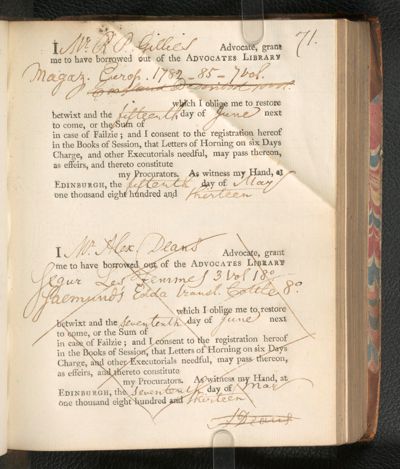 71.
I Mr. R. P. Gillies Advocate, grant
me to have borrowed out of the ADVOCATES LIBRARY
Magaz. Europ. 1782-85-7 vol.
which I oblige me to restore
betwixt and the fifteenth day of June next
to come, or the Sum of
in case of Failzie; and I consent to the registration hereof
in the Books of Session, that Letters of Horning on six Days
Charge, and other Executorials needful, may pass thereon,
as effeirs, and thereto constitute
my Procurators. As witness my Hand, at
EDINBURGH, the fifteenth day of May
one thousand eight hundred and thirteen
I Mr. Alex. Deans Advocate, grant
me to have borrowed out of the ADVOCATES LIBRARY
Segur Les Femmes 3 Vol 18o
Saemund's Edda transl. Cottle 8o.
which I oblige me to restore
betwixt and the seventeenth day of June next
to come, or the Sum of
in case of Failzie; and I consent to the registration hereof
in the Books of Session, that Letters of Horning on six Days
Charge, and other Executorials needful, may pass thereon,
as effeirs, and thereto constitute
my Procurators. As witness my Hand, at
EDINBURGH, the seventeenth day of May
one thousand eight hundred and thirteen
Deans